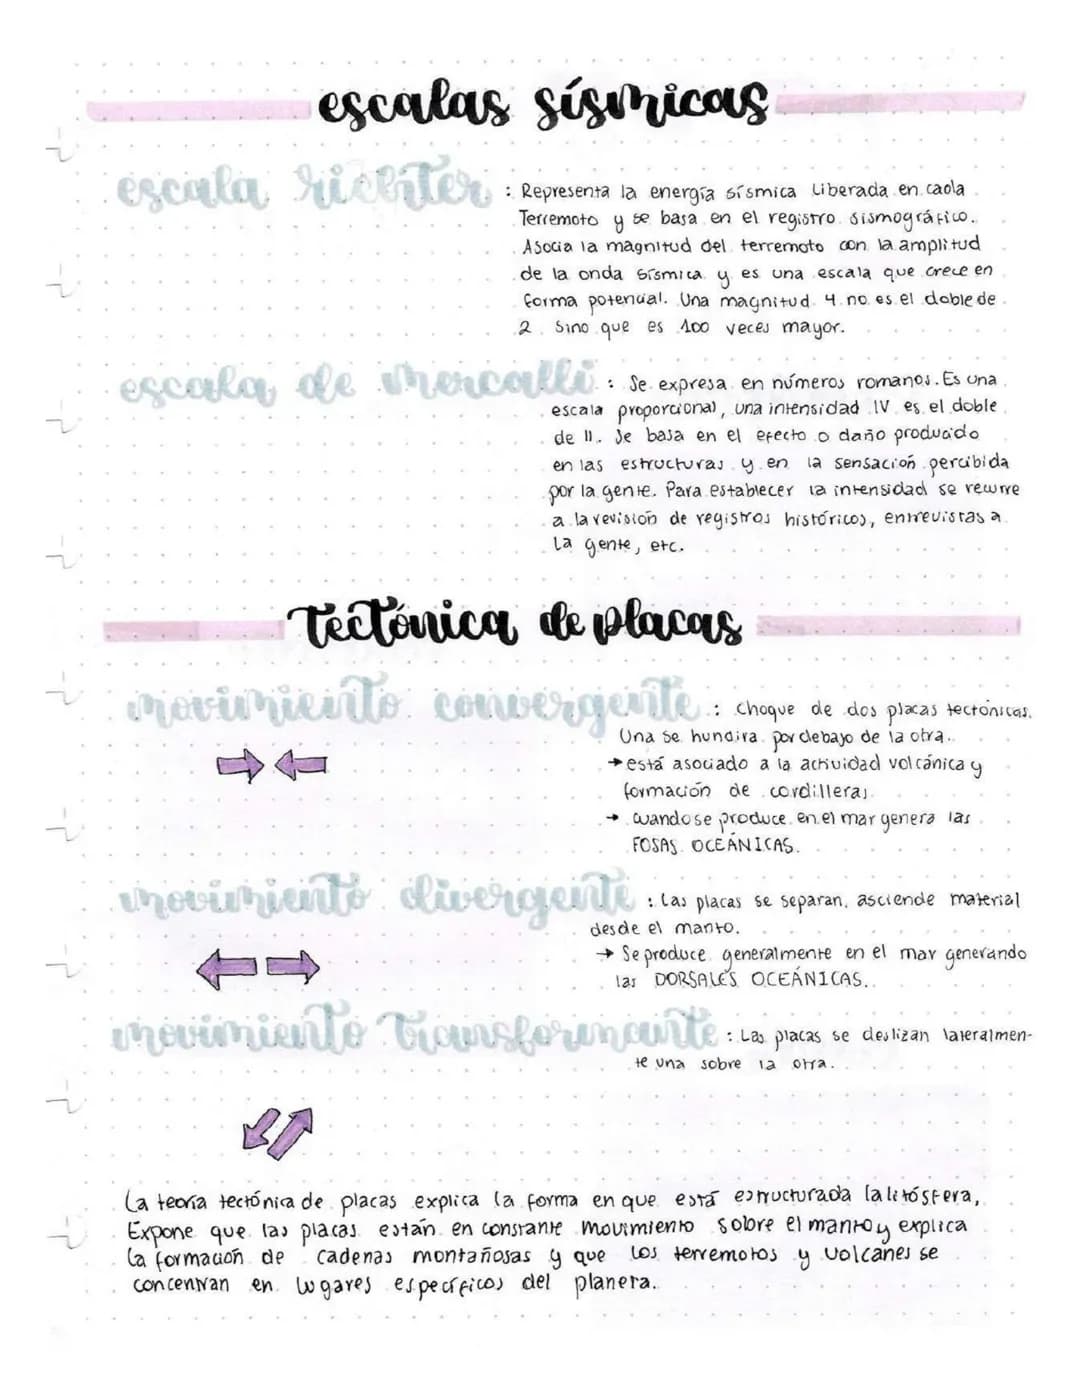 escalas sísmicas
escala richter : Representa la energía sísmica Liberada en caola
Terremoto y se basa en el registro sismográfico.
Asocia la magnitud del terremoto con la amplitud
de la onda sísmica y es una escala que crece en
forma potencial. Una magnitud 4 no es el doble de
2 sino que es 100 veces mayor.
escala de mercalli : Se expresa en números romanos. Es una
escala proporcional, una intensidad IV es el doble
de II. Se basa en el efecto o daño producido
en las estructuras y en la sensación percibida
por la gente. Para establecer la intensidad se recurre
a la revisión de registros históricos, entrevistas a
la gente, etc.
Tectónica de placas
movimiento convergente : Choque de dos placas tectónicas.
Una se hundira por debajo de la otra.
→ está asociado a la actividad volcánica y
formación de cordilleras.
→ cuando se produce en el mar genera las
FOSAS OCEÁNICAS.
movimiento divergente : Las placas se separan, asciende material
desde el manto.
→ Se produce generalmente en el mar generando
las DORSALES OCEÁNICAS.
movimiento transformante : Las placas se deslizan lateralmen-
te una sobre la otra.
La teoría tectónica de placas explica la forma en que está estructurada la litósfera,
Expone que las placas están en constante movimiento sobre el manto y explica
la formación de cadenas montañosas y que los terremotos y volcanes se
concentran en lugares específicos del planeta.